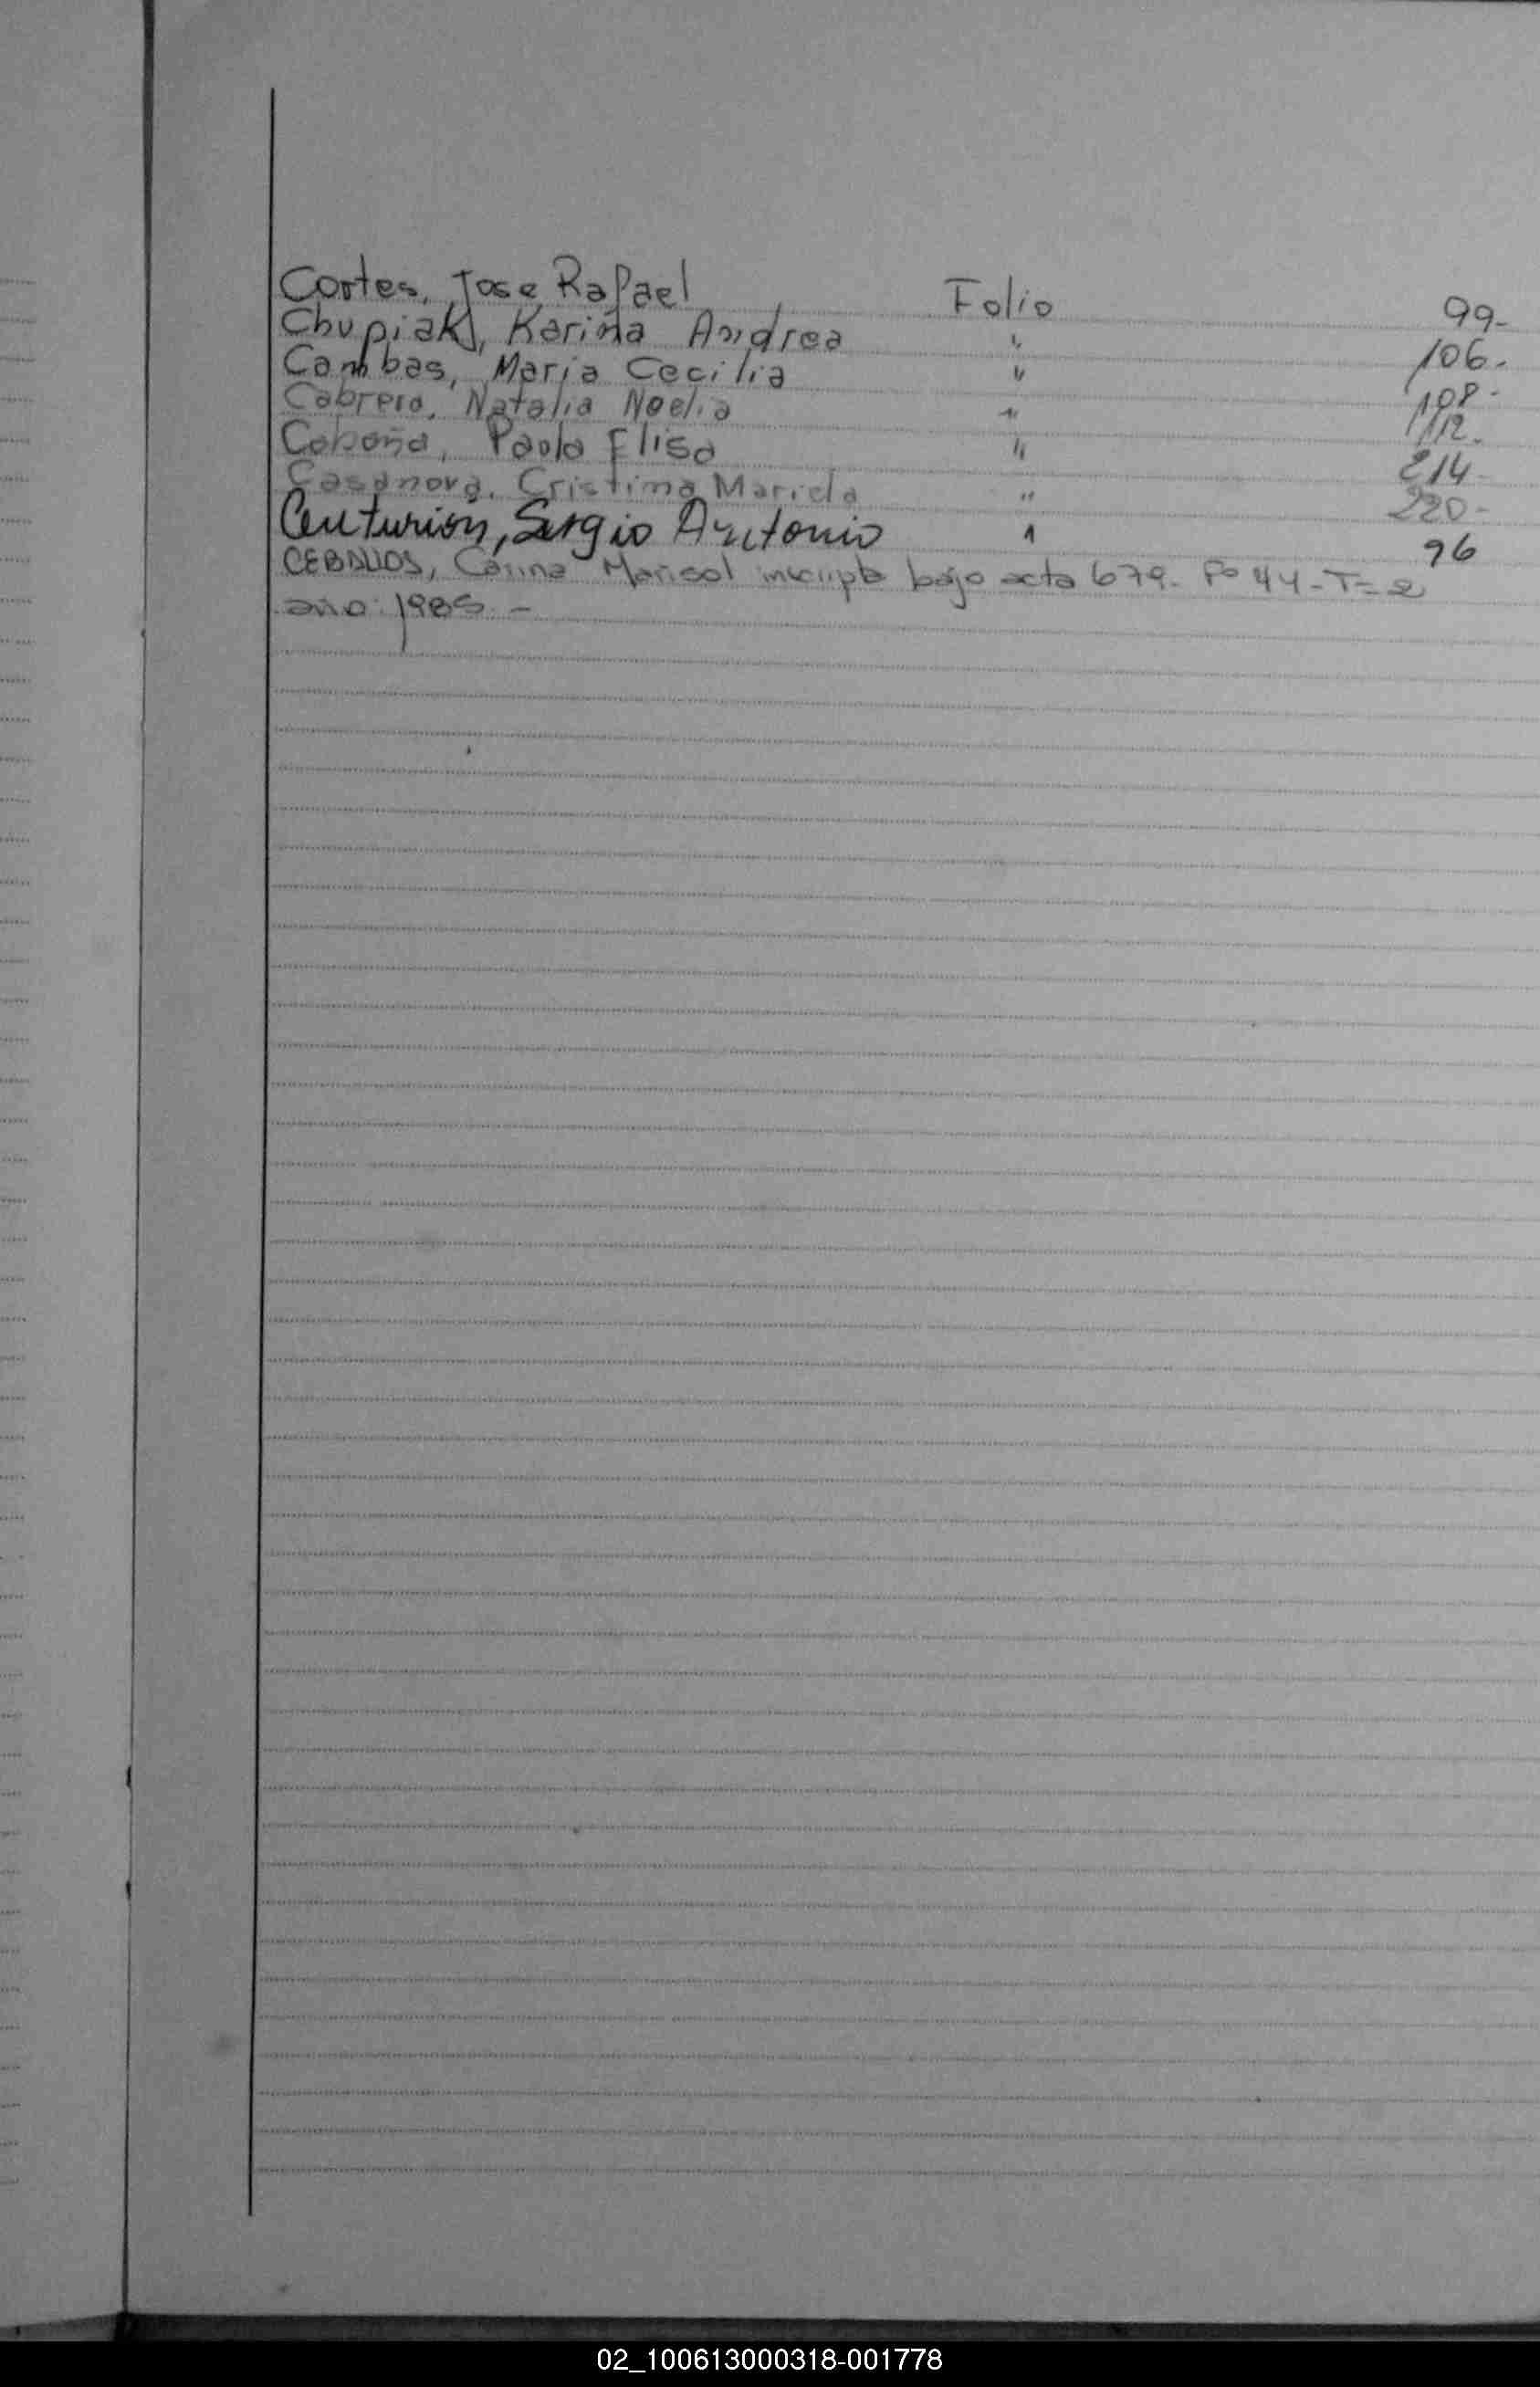 Cortes, Jose Rafael Folio 99-
Chupiak, Karina Andrea " 106-
Cambas, Maria Cecilia " 108-
Cabrera, Natalia Noelia " 112.
Cabaña, Paola Elisa " 214-
Casanova, Cristina Mariela " 220-
Centurión, Sergio Antonio " 96
CEBALLOS, Carina Marisol inscripta bajo acta 679- Fº 44-T=2
año: 1985.-
02_100613000318-001778